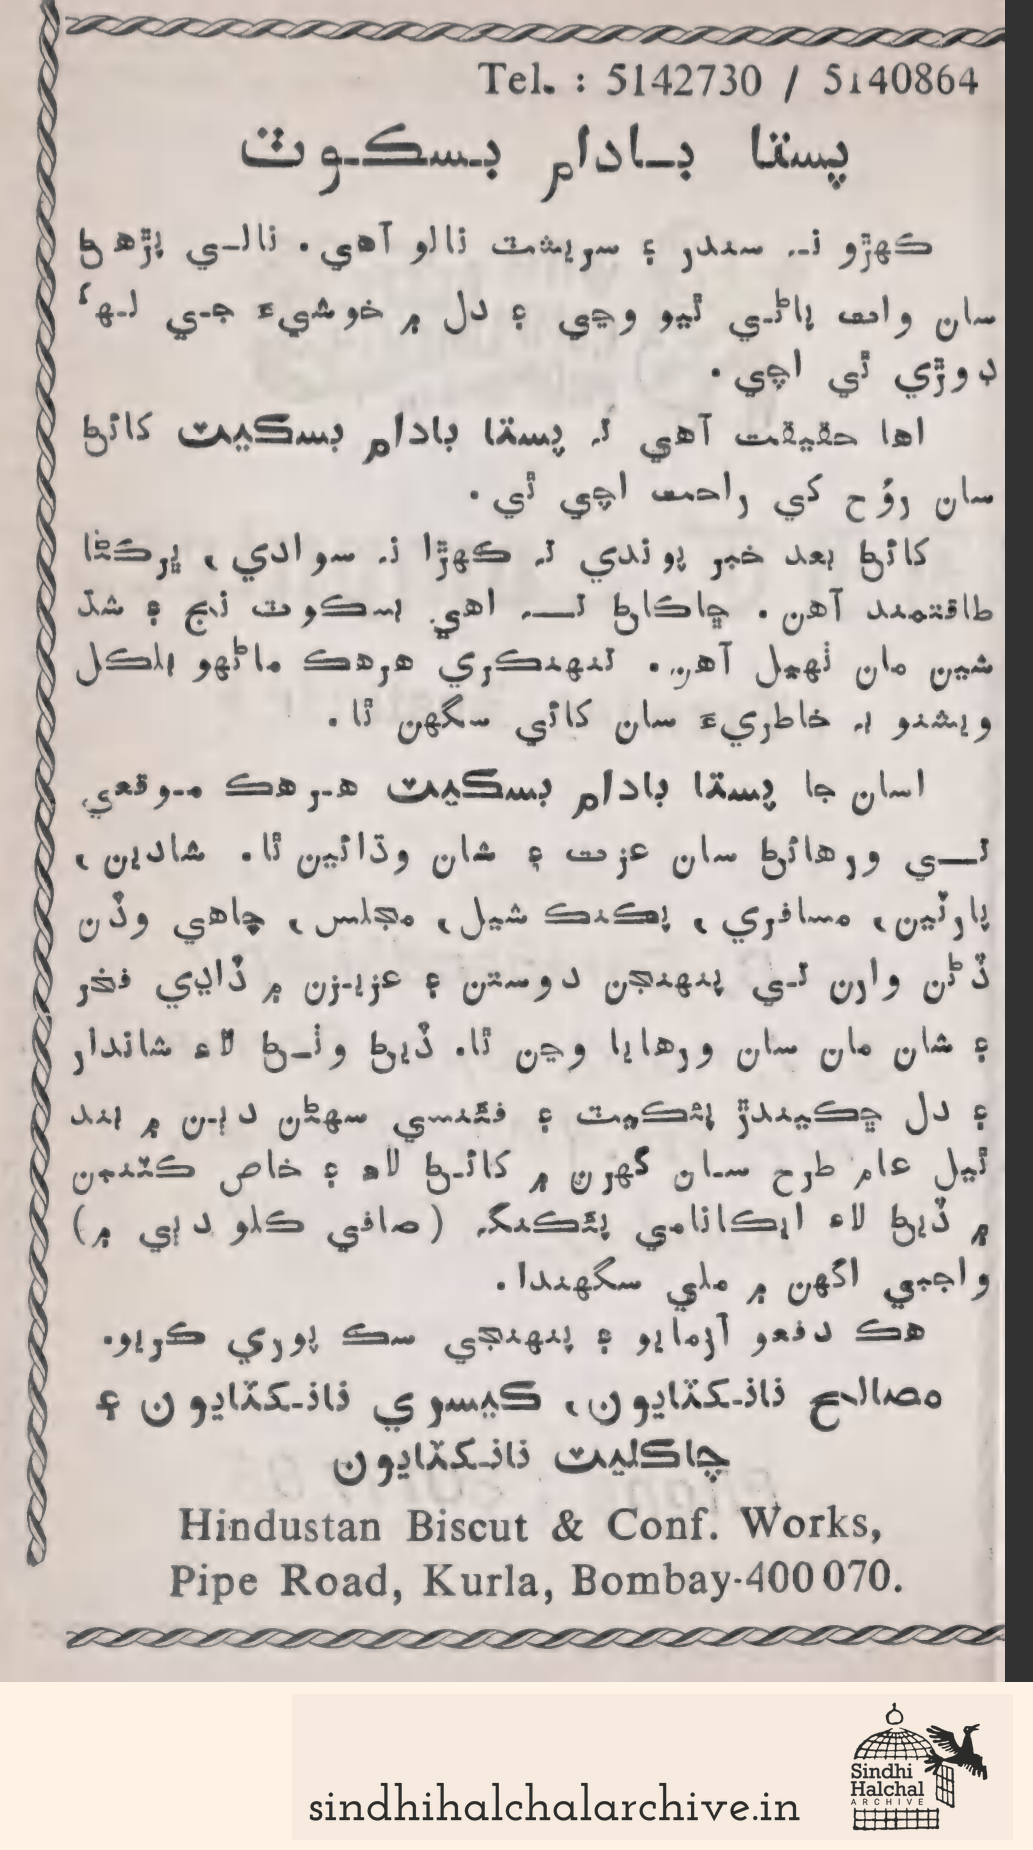 Tel. : 5142730 / 5140864
پستا بادام بسڪوٽ
ڪهڙو نہ سندر ۽ سريشٽ نالو آهي. نالي پڙهڻ
سان وات پاڻي ٿيو وڃي ۽ دل ۾ خوشيءَ جي لهر
ڊوڙي ٿي اچي.
اها حقيقت آهي تہ پستا بادام بسڪيٽ کائڻ
سان روُح کي راحت اچي ٿي.
کائڻ بعد خبر پوندي تہ ڪهڙا نہ سوادي، ڀرڪڻا
طاقتمند آهن. ڇاڪاڻ تہ اهي بسڪوٽ نج ۽ شڌ
شين مان ٺهيل آهن. تنهنڪري هرهڪ ماڻهو بلڪل
ويشنو بہ خاطريءَ سان کائي سگهن ٿا.
اسان جا پستا بادام بسڪيٽ هر هڪ موقعي
تي ورهائڻ سان عزت ۽ شان وڌائين ٿا. شادين،
پارٽين، مسافري، پڪنڪ شيل، مجلس، چاهي وڏن
ڏڻن وارن تي پنهنجن دوستن ۽ عزيزن ۾ ڏاڍي فخر
۽ شان مان سان ورهايا وڃن ٿا. ڏيڻ وٺڻ لاءِ شاندار
۽ دل ڇڪيندڙ پئڪيٽ ۽ فئنسي سهڻن دٻن ۾ بند
ٿيل عام طرح سان گهرن ۾ کائڻ لاءِ ۽ خاص ڪٽنبن
۾ ڏيڻ لاءِ ايڪانامي پئڪنگہ (صافي ڪلو دٻي ۾)
واجبي اگهن ۾ ملي سگهندا.
هڪ دفعو آزمايو ۽ پنهنجي سڪ پوري ڪريو.
مصالح نانڪٽايون، ڪيسري نانڪٽايون ۽
چاڪليٽ نانڪٽايون
Hindustan Biscut & Conf. Works,
Pipe Road, Kurla, Bombay-400 070.
sindhihalchalarchive.in
Sindhi
Halchal
ARCHIVE